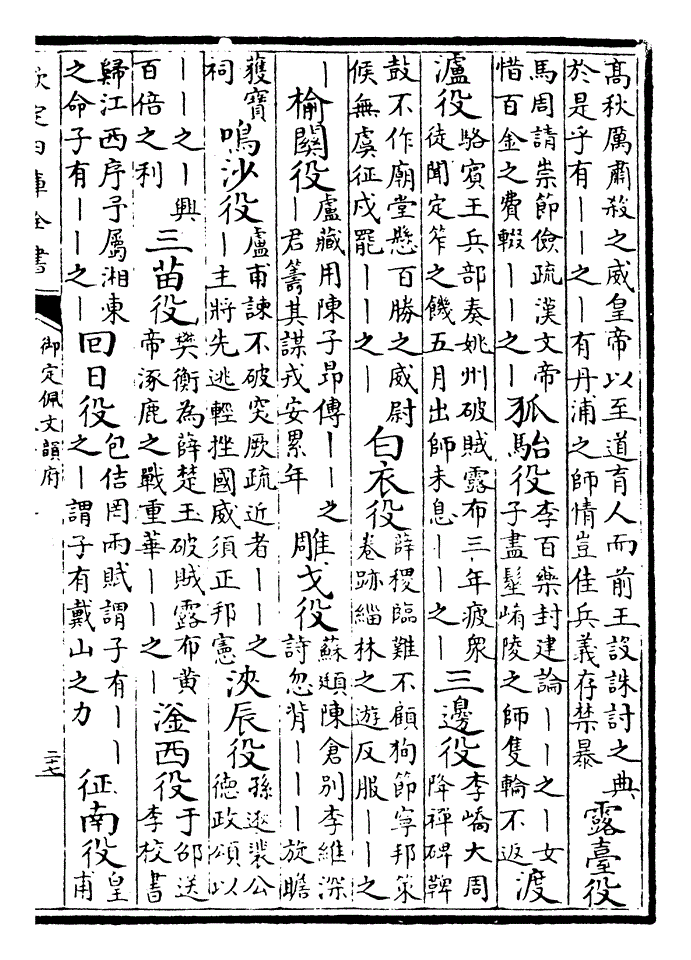 高秋厲肅殺之威皇帝以至道育人而前王設誅討之典
於是乎有丨丨之丨有丹浦之師情豈佳兵義存禁暴
露臺役
馬周請崇節儉疏漢文帝
惜百金之費輟丨丨之丨
狐駘役
李百藥封建論丨丨之丨女
子盡髽崤陵之師隻輪不返
渡
瀘役
駱賓王兵部奏姚州破賊露布三年疲衆
徒聞定笮之饑五月出師未息丨丨之丨
三邊役
李嶠大周
降禪碑鞞
鼓不作廟堂懸百勝之威尉
候無虞征戍罷丨丨之丨
白衣役
薛稷臨難不顧狥節寧邦策
卷跡緇林之遊反服丨丨之
丨
榆關役
盧藏用陳子昂傳丨丨之
丨君籌其謀戎安累年
雕戈役
蘇頲陳倉別李維深
詩忽背丨丨丨旋瞻
獲寶
祠
鳴沙役
盧甫諫不破突厥疏近者丨丨之
丨主將先逃輕挫國威須正邦憲
浹辰役
孫逖裴公
德政頌以
丨丨之丨興
百倍之利
三苗役
樊衡為薛楚玉破賊露布黃
帝涿鹿之戰重華丨丨之丨
滏西役
于邵送
李校書
歸江西序予屬湘東
之命子有丨丨之丨
回日役
包佶罔兩賦謂子有丨丨
之丨謂子有戴山之力
征南役
皇
甫
欽定四庫全書
御定佩文韻府
二十七